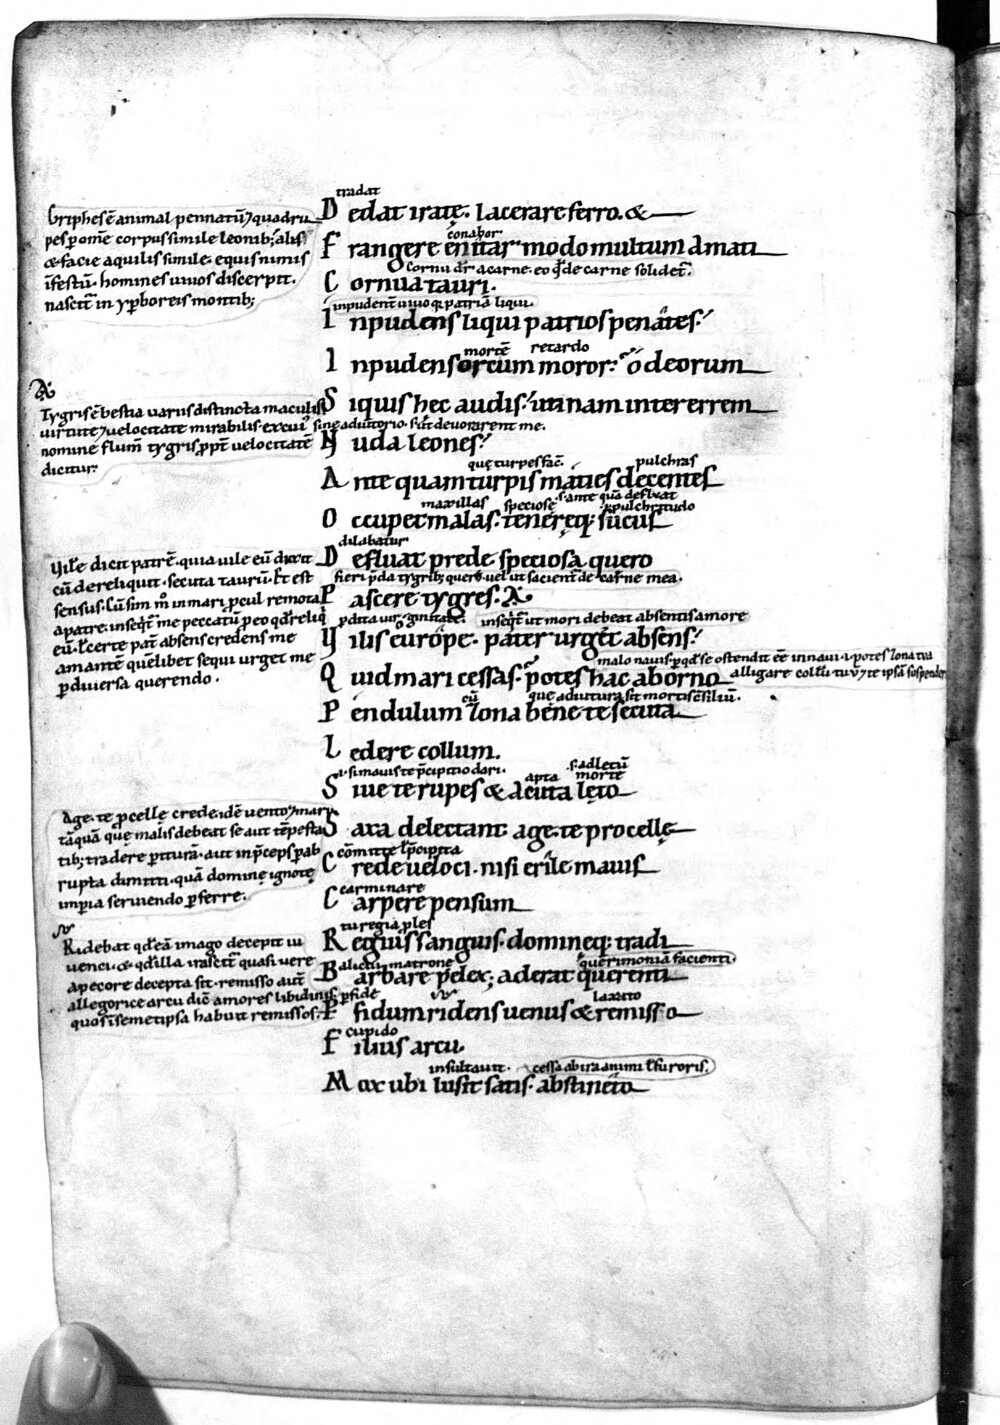 tradat
Dedat iratę. lacerare ferro. &
conabor
Frangere enitar modo multum amati
Cornu dr̄ a carne. eo qđ de carne solidet̄.
Cornua tauri.
inpudent̄ uiuo qꝫ patriā liqui.
Inpudens liqui patrios penates.
mortē retardo
Inpudens orcum moror. o deorum
Siquis hec audis. utinam inter errem
sine adiutorio. s. ut deuorarent me.
Nuda leones.
quę turpes fac̄. pulchras
Ante quam turpis macies decentes
maxillas speciosę s. ante quā defluat pulchritudo
Occupet malas. tenerę qꝫ sucus
dilabatur
Defluat prede speciosa quero
fieri p̄da tygribꝫ quero. uel ut sacient̄ de carne mea.
Pascere tygres.
inseqt̄ ut mori debeat absentis amore
Vilis europe. pater urget absens.
malo nauis. p qđ se ostendit eē in naui. i. potes zona tua
Quid mori cessas. potes hac ab orno
alligare collū tuū & te ipsā suspendere
eū que adiutura sit mortis c̄siliū.
Pendulum zona bene te secuta
Ledere collum.
i. si mauis te p̄cipitio dari. apta s. ad letū morte
Siue te rupes & acuta lęto
Saxa delectant age. te procellę
cōmitte l̄ p̄cipita
Crede ueloci. nisi erile mauis
carminare
Carpere pensum
tu regia p̄les
Regius sanguis. domineqꝫ tradi
alicui matrone querimonia facienti.
Barbare pelex; aderat querenti
laxato
Perfidum ridens uenus & remisso
cupido
Filius arcu
insultauit. cessa ab ira animi l̄ furoris.
Mox ubi lusit satis. abstineto
Griphes ē animal pennatū & quadru
pes p omē corpus simile leonibꝫ; alis
& facie aquilis simile. equis nimis
īfestū. homines uiuos discerpit.
nascit̄ in yperboreis montibꝫ;
Tygris ē bestia uariis distincta maculis
uirtute & velocitate mirabilis. ex cui
nomine flum̄ tygris ppt̄ uelocitatē
dicitur
Vilē dicit patrē. quia uile eū duxit
cū dereliquit. secuta taurū. ł est
sensus. Cū sim m̊ in mari p̄cul remota
a patre. inseqt̄ me peccatū p eo qđ reliq̄
eū. ł certe pat̄ absens credens me
amantē quēlibet sequi urget me
p diuersa querendo.
Age. te procellę crede. idē uento & mari
tāquā quę malis debeat se aut tēpesta
tibꝫ tradere peritura. aut in p̄ceps p ab
rupta dimitti. quā dominę ignotę
imperia seruiendo perferre.
Ridebat qđ eā imago decepit iu
uenci. & qđ illa irascit̄ quasi uere
a pecore decepta sit. remisso aut̄
allegorice arcu dic̄ amores libidinis
quos i semet ipsa habuit remissos.